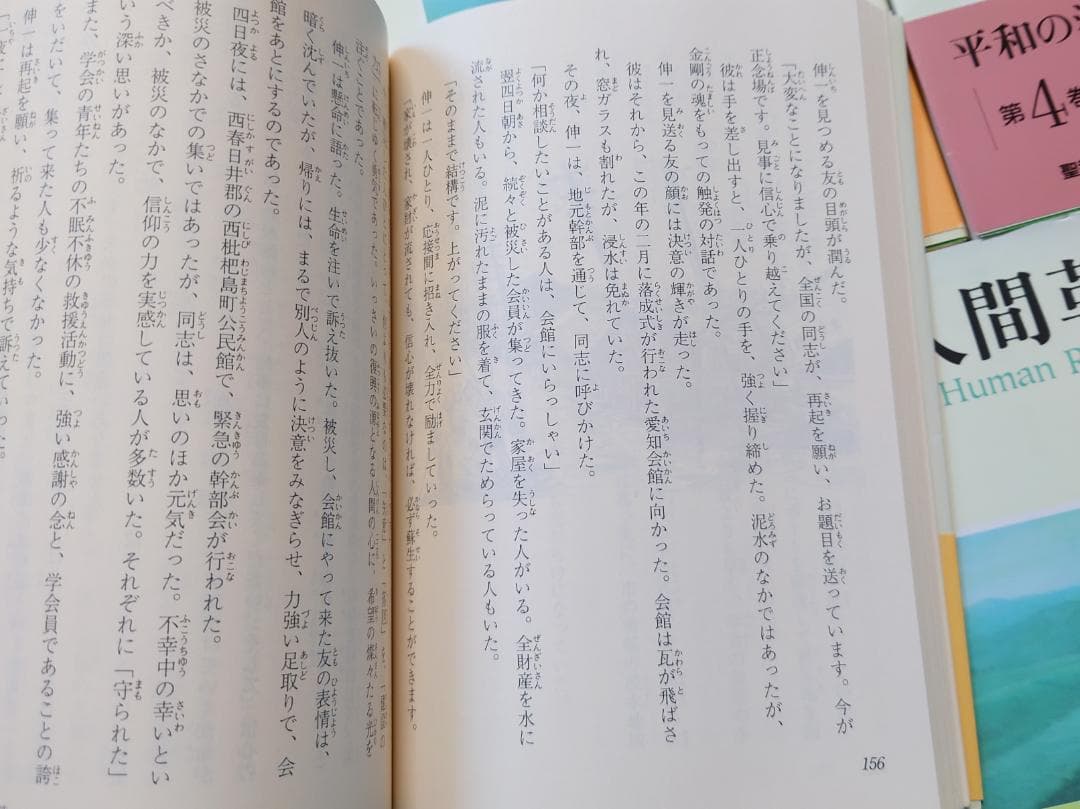 伸一を見つめる友の目頭が潤んだ。
「大変なことになりましたが、全国の同志が、再起を願い、お題目を送っています。今が
正念場です。見事に信心で乗り越えてください」
彼は手を差し出すと、一人ひとりの手を、強く握り締めた。泥水のなかではあったが、
金剛の魂をもっての触発の対話であった。
伸一を見送る友の顔には決意の輝きが走った。
彼はそれから、この年の二月に落成式が行われた愛知会館に向かった。会館は瓦が飛ばさ
れ、窓ガラスも割れたが、浸水は免れていた。
その夜、伸一は、地元幹部を通して、同志に呼びかけた。
「何か相談したいことがある人は、会館にいらっしゃい」
翌四日朝から、続々と被災した会員が集ってきた。家屋を失った人がいる。全財産を水に
流された人もいる。泥に汚れたままの服を着て、玄関でためらっている人もいた。
「そのままで結構です。上がってください」
伸一は一人ひとり、応接間に招き入れ、全力で励ましていった。
「家が壊され、家財が流されても、信心が壊れなければ、必ず蘇生することができます。
156
いっさいの復興の源となる人間の心に、希望の燦々たる光を
注ぐことであった。
伸一は懸命に語った。生命を注いで訴え抜いた。被災し、会館にやって来た友の表情は、
暗く沈んでいたが、帰りには、まるで別人のように決意をみなぎらせ、力強い足取りで、会
館をあとにするのであった。
四日夜には、西春日井郡の西枇杷島町公民館で、緊急の幹部会が行われた。
被災のさなかでの集いではあったが、同志は、思いのほか元気だった。不幸中の幸いとい
べきか、被災のなかで、信仰の力を実感している人が多数いた。それぞれに「守られた」
いう深い思いがあった。
また、学会の青年たちの不眠不休の救援活動に、強い感謝の念と、学会員であることの誇
をいだいて、集って来た人も少なくなかった。
伸一は再起を願い、祈るような気持ちで訴えていった。
平和の
第4巻
聖
人間革
Human R